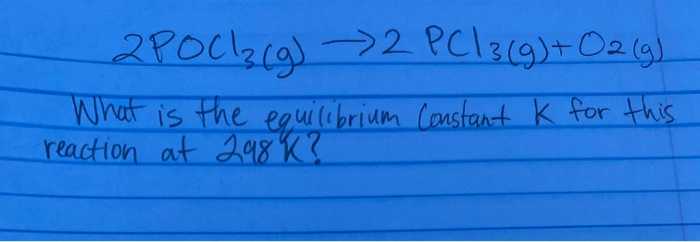 2POCl3(g) →2 PCl3(g)+O2(g)
What is the equilibrium Constant K for this
reaction at 298 K?